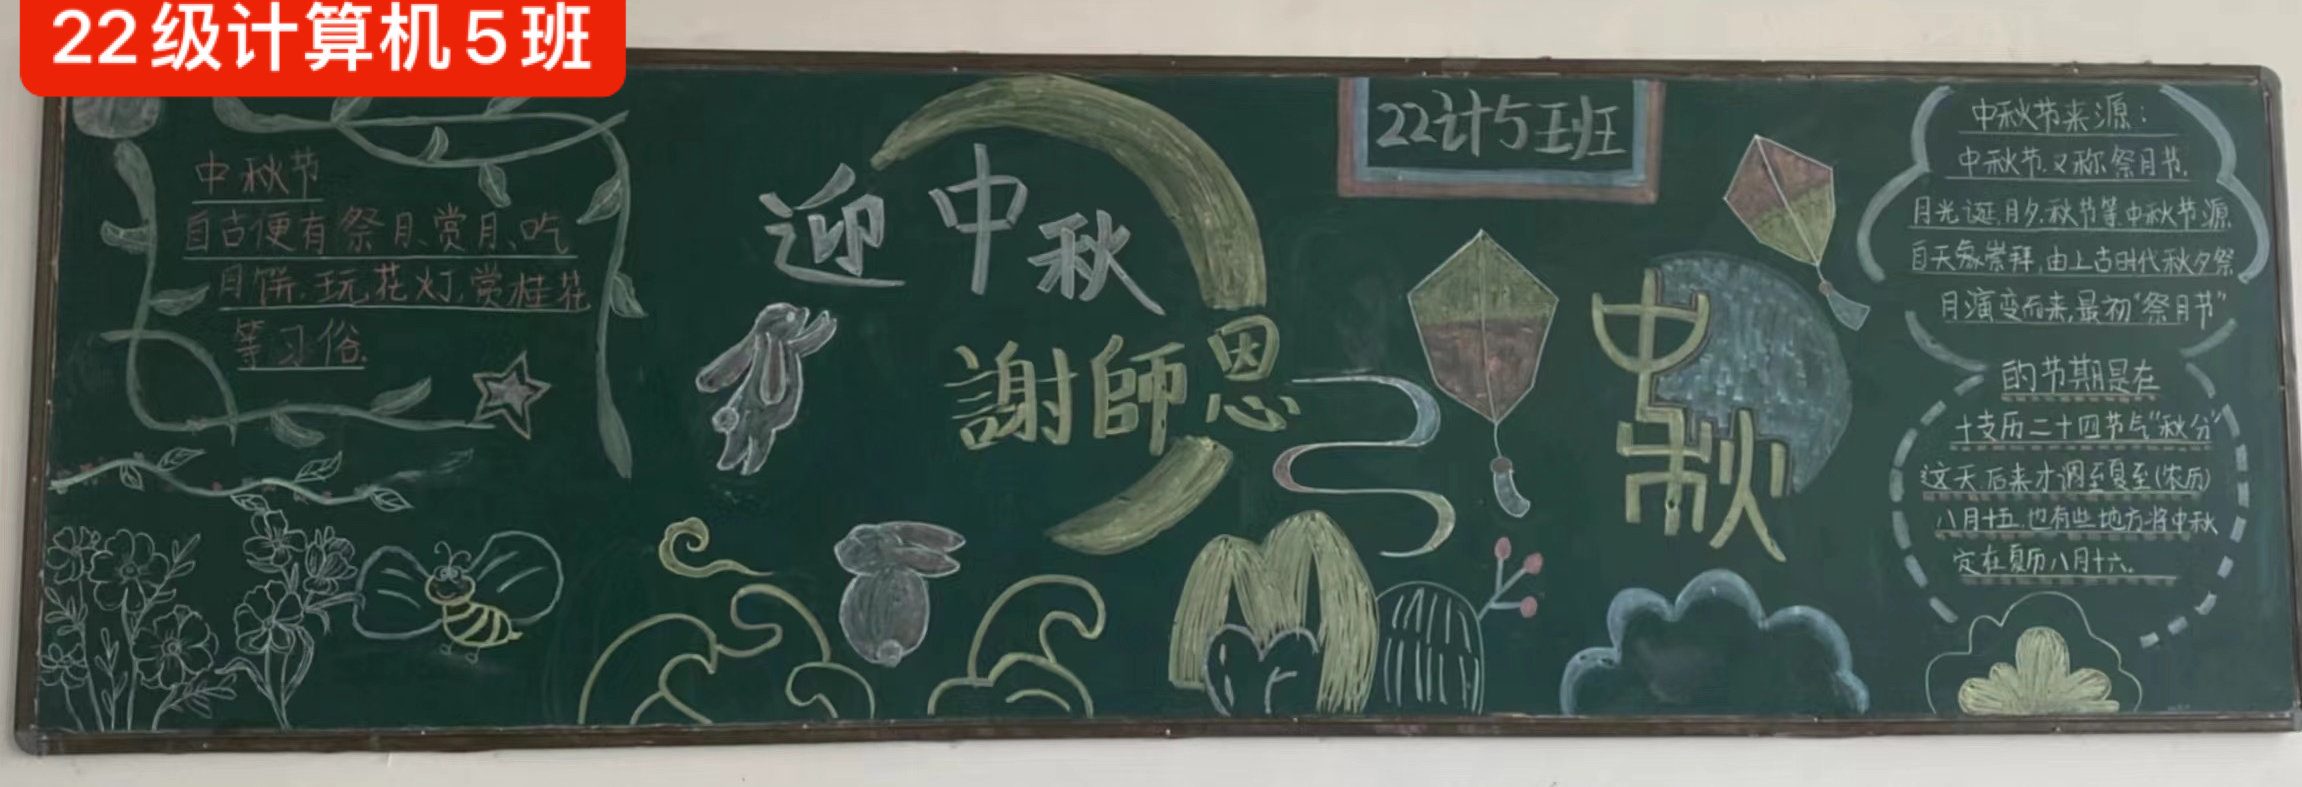 22级计算机5班
中秋节
自古便有祭月、赏月、吃
月饼、玩花灯、赏桂花
等习俗.
迎中秋
謝師恩
22计5班
中秋
中秋节来源:
中秋节.又称祭月节.
月光诞、月夕、秋节等.中秋节源
自天象崇拜,由上古时代秋夕祭
月演变而来,最初“祭月节”
的节期是在
干支历二十四节气“秋分”
这天,后来才调至夏至(农历)
八月十五,也有些地方将中秋
定在夏历八月十六.